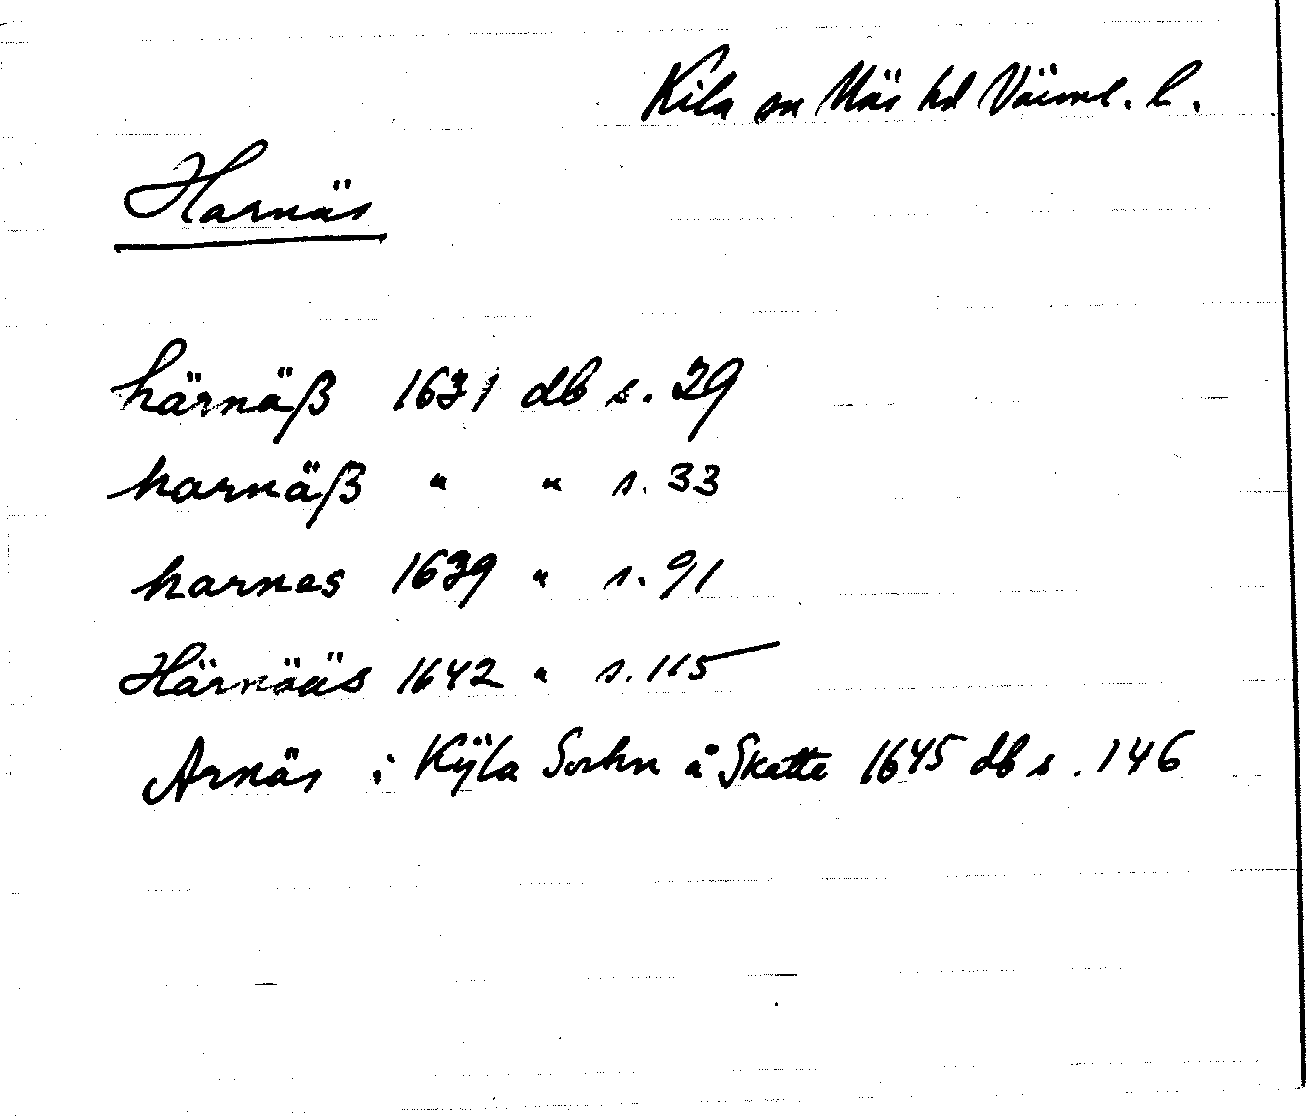 Kila sn Näs hd Värml. l.
Harnäs
härnäß 1631 db s. 29
harnäß " " s. 33
harnes 1639 " s. 91
Härnääs 1642 " s. 115
Arnäs i Kÿla Sochn å Skatte 1645 db s. 146